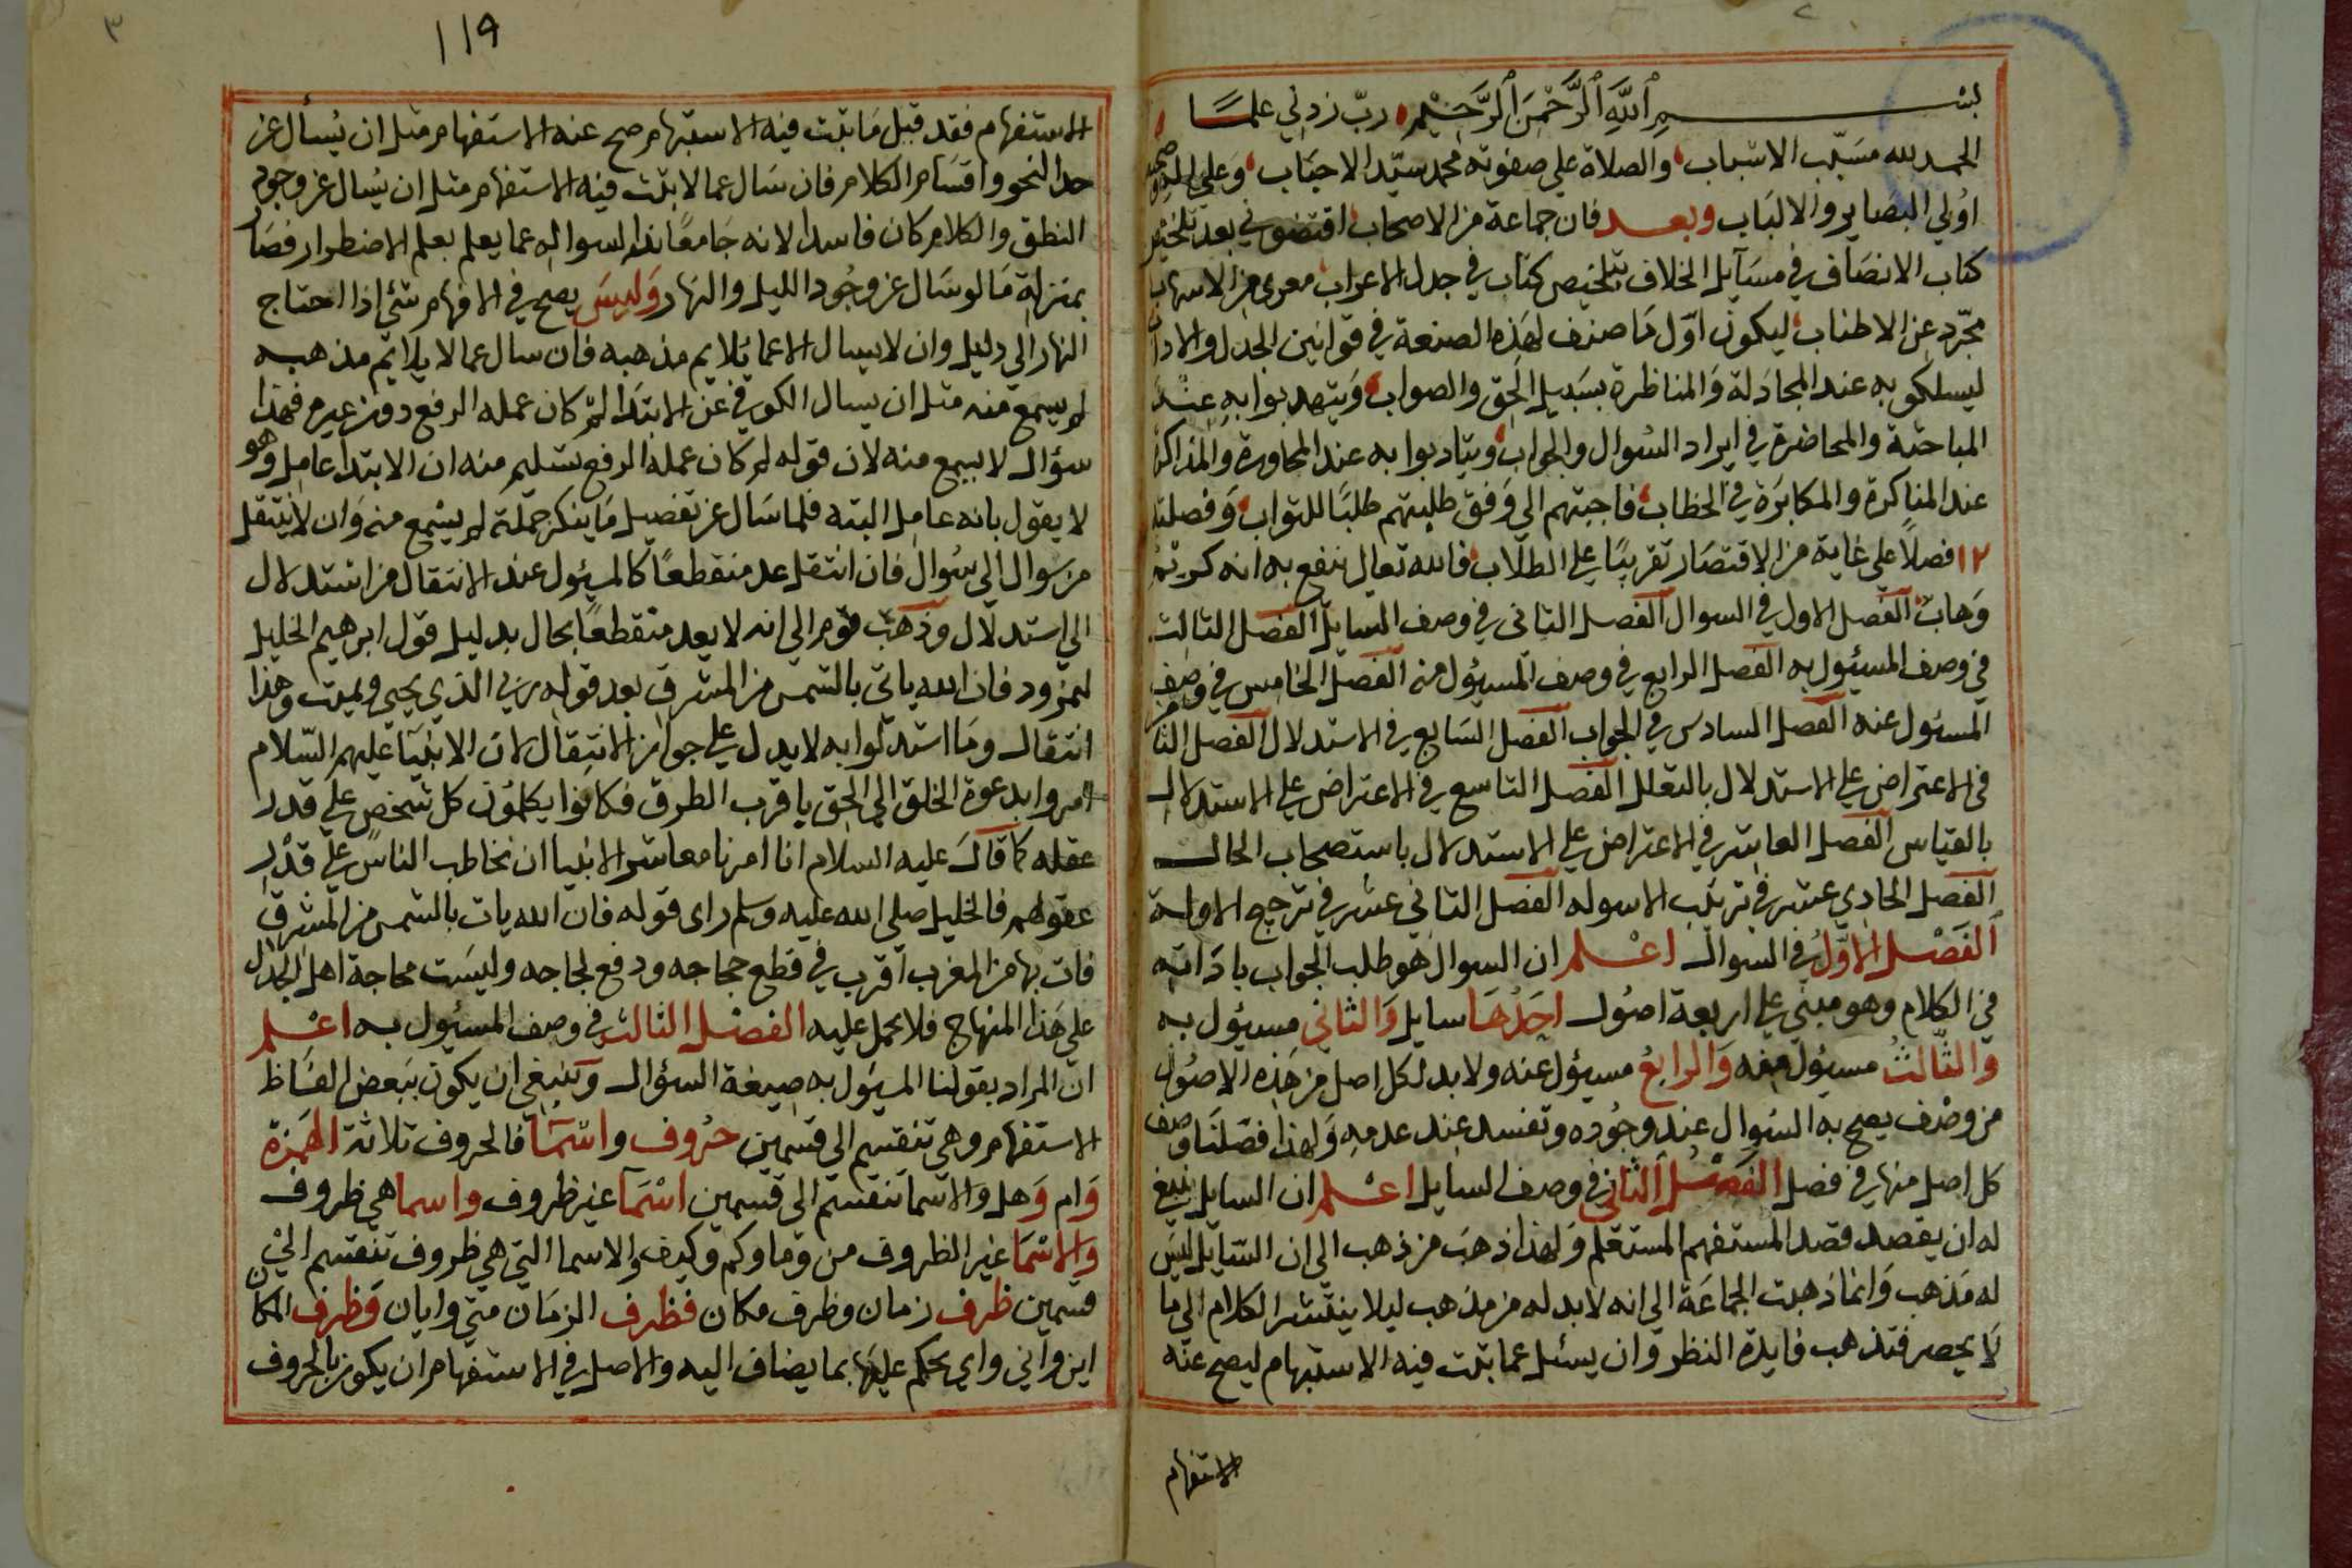 بسم الله الرحمن الرحيم رب زدني علما
الحمد لله مسبب الاسباب والصلاة على صفوته محمد سيد الاحباب وعلى اله وصحبه
اولي البصاير والالباب وبعد فان جماعة من الاصحاب اقتضوني بعد تلخيص
كتاب الانصاف في مسآيل الخلاف تلخيص كتاب في جدل الاعراب معرى من الاسهاب
مجرد عن الاطناب ليكون اول ما صنف لهذه الصنعة في قوانين الجدل والاداب
ليسلكو به عند المجادلة والمناظرة بسبيل الحق والصواب ويتهدبوا به عند
المباحثة والمحاضرة في ايراد السوال والجواب ويتادبوا به عند المحاورة والمذاكرة
عند المناكرة والمكابرة في الخطاب فاجبتهم الي وفق طلبتهم طلبا للثواب وفصلته
١٢ فصلا علي غاية من الاقتصار تقريبا على الطلاب فالله تعالى ينفع به انه كريم
وهاب الفصل الاول في السوال الفصل الثاني في وصف السايل الفصل الثالث
في وصف المسيئول به الفصل الرابع في وصف المسيئول منه الفصل الخامس في وصف
المسئول عنه الفصل السادس في الجواب الفصل السابع في الاستدلال الفصل الثامن
في الاعتراض على الاستدلال بالنقل الفصل التاسع في الاعتراض على الاستدلال
بالقياس الفصل العاشر في الاعتراض على الاستدلال باستصحاب الحال
الفصل الحادي عشر في ترتيب الاسوله الفصل الثاني عشر في ترجيح الادلة
الفصل الاول في السوال اعلم ان السوال هو طلب الجواب باداته
في الكلام وهو مبني على اربعة اصول احدها سايل والثاني مسيئول به
والثالث مسيئول منه والرابع مسيئول عنه ولا بد لكل اصل من هذه الاصول
من وصف يصح به السوال عند وجوده وتفسد عند عدمه ولهذا فصلنا وصف
كل اصل منها في فصل الفصل الثاني في وصف السايل اعلم ان السايل ينبغي
له ان يقصد قصد المستفهم المستعلم ولهذا ذهب من ذهب الى ان السايل ليس
له مذهب وانما ذهبت الجماعة الى انه لا بد له من مذهب ليلا ينتشر الكلام الى ما
لا يحصر فتذهب فايدة النظر وان يسئل عما ثبت فيه الاستبهام ليصح عنه
الاستفهام
١١٩
٣
الاستفهام فقد قيل ما ثبت فيه الاستبهام صح عنه الاستفهام مثل ان يسأل عن
حد النحو واقسام الكلام فان سال عما لا يثبت فيه الاستفهام مثل ان يسال عن وجود
النطق والكلام كان فاسدا لانه جامعا نداء لسواله عما يعلم بعلم الاضطرار فصار
بمنزلة ما لو سال عن وجود الليل والنهار وليس يصح في الافهام شئ اذا احتاج
النهار الي دليل وان لا يسال الا عما يلايم مذهبه فان سال عما لا يلايم مذهبه
لم يسمع منه مثل ان يسال الكوفي عن الابتداء لم كان عمله الرفع دون غيره فهذا
سؤال لا يسمع منه لان قوله لم كان عمله الرفع تسليم منه ان الابتدا عامل وهو
لا يقول بانه عامل البته فلما سال عن تفصيل ما ينكر جملته لم يسمع منه وان لا ينتقل
من سوال الي سوال فان انتقل عد منقطعا كالمسيئول عند الانتقال من استدلال
الي استدلال وذهب قوم الي انه لا يعد منقطعا بحال بدليل قول ابرهيم الخليل
لنمرود فان الله ياتي بالشمس من المشرق بعد قوله ربي الذي يحيي ويميت وهذا
انتقال وما استدلوا به لا يدل على جواز الانتقال لان الانبيا عليهم السلام
امروا بدعوة الخلق الى الحق باقرب الطرق فكانوا يكلمون كل شخص على قدر
عقله كما قال عليه السلام انا امرنا معاشر الانبيا ان نخاطب الناس على قدر
عقولهم فالخليل صلى الله عليه وسلم راى قوله فان الله يات بالشمس من المشرق
فات بها من المغرب اقرب في قطع حجاجه ودفع لجاجه وليست محاجة اهل الجدال
على هذا المنهاج فلا يحمل عليه الفصل الثالث في وصف المسئول به اعلم
ان المراد بقولنا المسيئول به صيغة السؤال وينبغي ان يكون ببعض الفاظ
الاستفهام وهي تنقسم الى قسمين حروف واسمآ فالحروف ثلاثة الهمزة
وام وهل والاسما تنقسم الى قسمين اسمآ غير ظروف واسما هي ظروف
والاسما غير الظروف من وما وكم وكيف والاسما التي هي ظروف تنقسم الي
قسمين ظرف زمان وظرف مكان فظرف الزمان متى وايان وظرف المكان
اين واني واي يحكم عليها بما يضاف اليه والاصل في الاستفهام ان يكون بالحروف